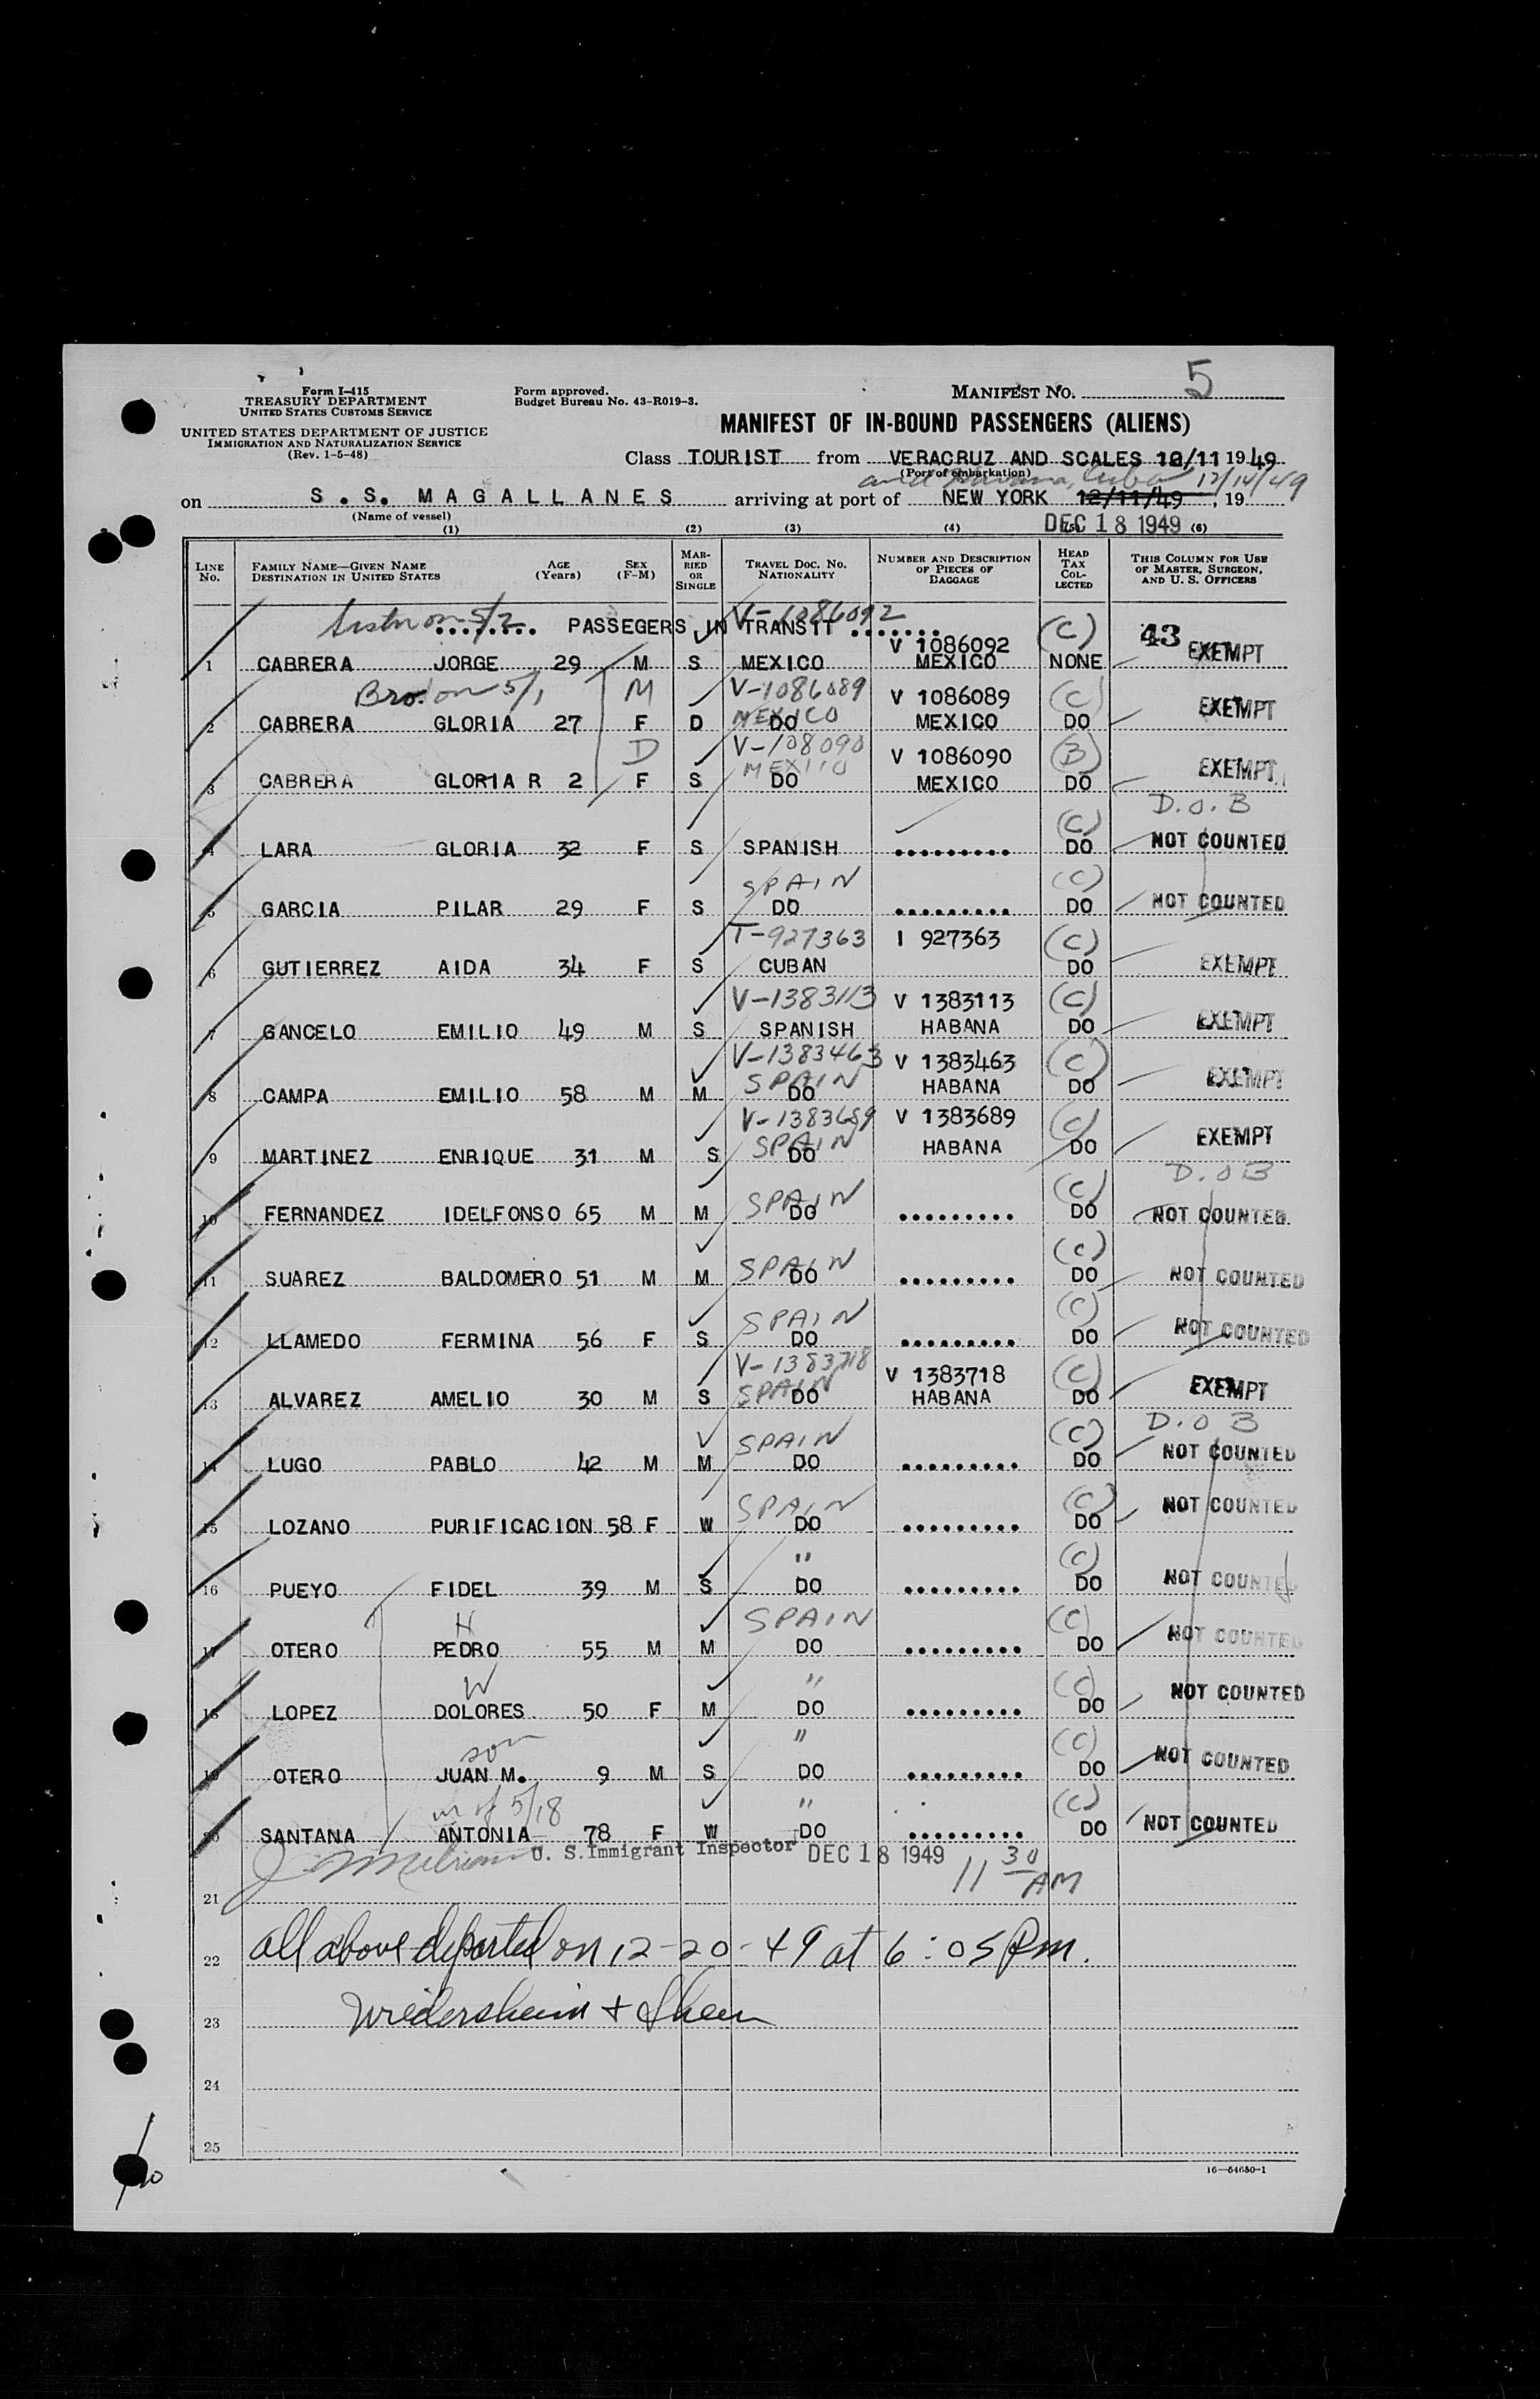 Form I-415
TREASURY DEPARTMENT
UNITED STATES CUSTOMS SERVICE
UNITED STATES DEPARTMENT OF JUSTICE
IMMIGRATION AND NATURALIZATION SERVICE
(Rev. 1-5-48)
Form approved.
Budget Bureau No. 43-R019-3.
MANIFEST NO. 5
MANIFEST OF IN-BOUND PASSENGERS (ALIENS)
Class TOURIST from VERACRUZ AND SCALES 12/11 1949
(Port of embarkation) and Havana, Cuba 12/14/49
on S.S. MAGALLANES arriving at port of NEW YORK 12/11/49, 19
(Name of vessel)
DEC 18 1949
(1) (2) (3) (4) (5) (6)
LINE No. FAMILY NAME—GIVEN NAME DESTINATION IN UNITED STATES AGE (Years) SEX (F-M) MARRIED OR SINGLE TRAVEL DOC. NO. NATIONALITY NUMBER AND DESCRIPTION OF PIECES OF BAGGAGE HEAD TAX COLLECTED THIS COLUMN FOR USE OF MASTER, SURGEON, AND U. S. OFFICERS
Sister on 5/2 V-1086092
........ PASSEGERS IN TRANSIT .......
V 1086092 (C) 43 EXEMPT
1 CABRERA JORGE 29 M S MEXICO MEXICO NONE
Bro. on 5/1 M V-1086089 V 1086089 (C) EXEMPT
2 CABRERA GLORIA 27 F D MEXICO DO MEXICO DO
D V-108090 V 1086090 (B) EXEMPT
3 CABRERA GLORIA R 2 F S MEXICO DO MEXICO DO
(C) D.O.B
4 LARA GLORIA 32 F S SPANISH ......... DO NOT COUNTED
SPAIN (C)
5 GARCIA PILAR 29 F S DO ......... DO NOT COUNTED
T-927363 I 927363 (C)
6 GUTIERREZ AIDA 34 F S CUBAN DO EXEMPT
V-1383113 V 1383113 (C)
7 GANCELO EMILIO 49 M S SPANISH HABANA DO EXEMPT
V-1383463 V 1383463 (C)
8 CAMPA EMILIO 58 M M SPAIN DO HABANA DO EXEMPT
V-1383689 V 1383689 (C)
9 MARTINEZ ENRIQUE 31 M S SPAIN DO HABANA DO EXEMPT
(C) D.O B
10 FERNANDEZ IDELFONSO 65 M M SPAIN DO ......... DO NOT COUNTED
(C)
11 SUAREZ BALDOMERO 51 M M SPAIN DO ......... DO NOT COUNTED
SPAIN (C)
12 LLAMEDO FERMINA 56 F S DO ......... DO NOT COUNTED
V-1383718 V 1383718 (C)
13 ALVAREZ AMELIO 30 M S SPAIN DO HABANA DO EXEMPT
SPAIN (C) D.O B
14 LUGO PABLO 42 M M DO ......... DO NOT COUNTED
SPAIN (C)
15 LOZANO PURIFICACION 58 F W DO ......... DO NOT COUNTED
" (C)
16 PUEYO FIDEL 39 M S DO ......... DO NOT COUNTED
H SPAIN (C)
17 OTERO PEDRO 55 M M DO ......... DO NOT COUNTED
W " (C)
18 LOPEZ DOLORES 50 F M DO ......... DO NOT COUNTED
son " (C)
19 OTERO JUAN M. 9 M S DO ......... DO NOT COUNTED
of 5/18 " (C)
20 SANTANA ANTONIA 78 F W DO ......... DO NOT COUNTED
U. S. Immigrant Inspector DEC 18 1949 11 30 AM
21
22 all above departed on 12-20-49 at 6:05 Pm.
23 Wiedersheim +
24
25
16—54650-1